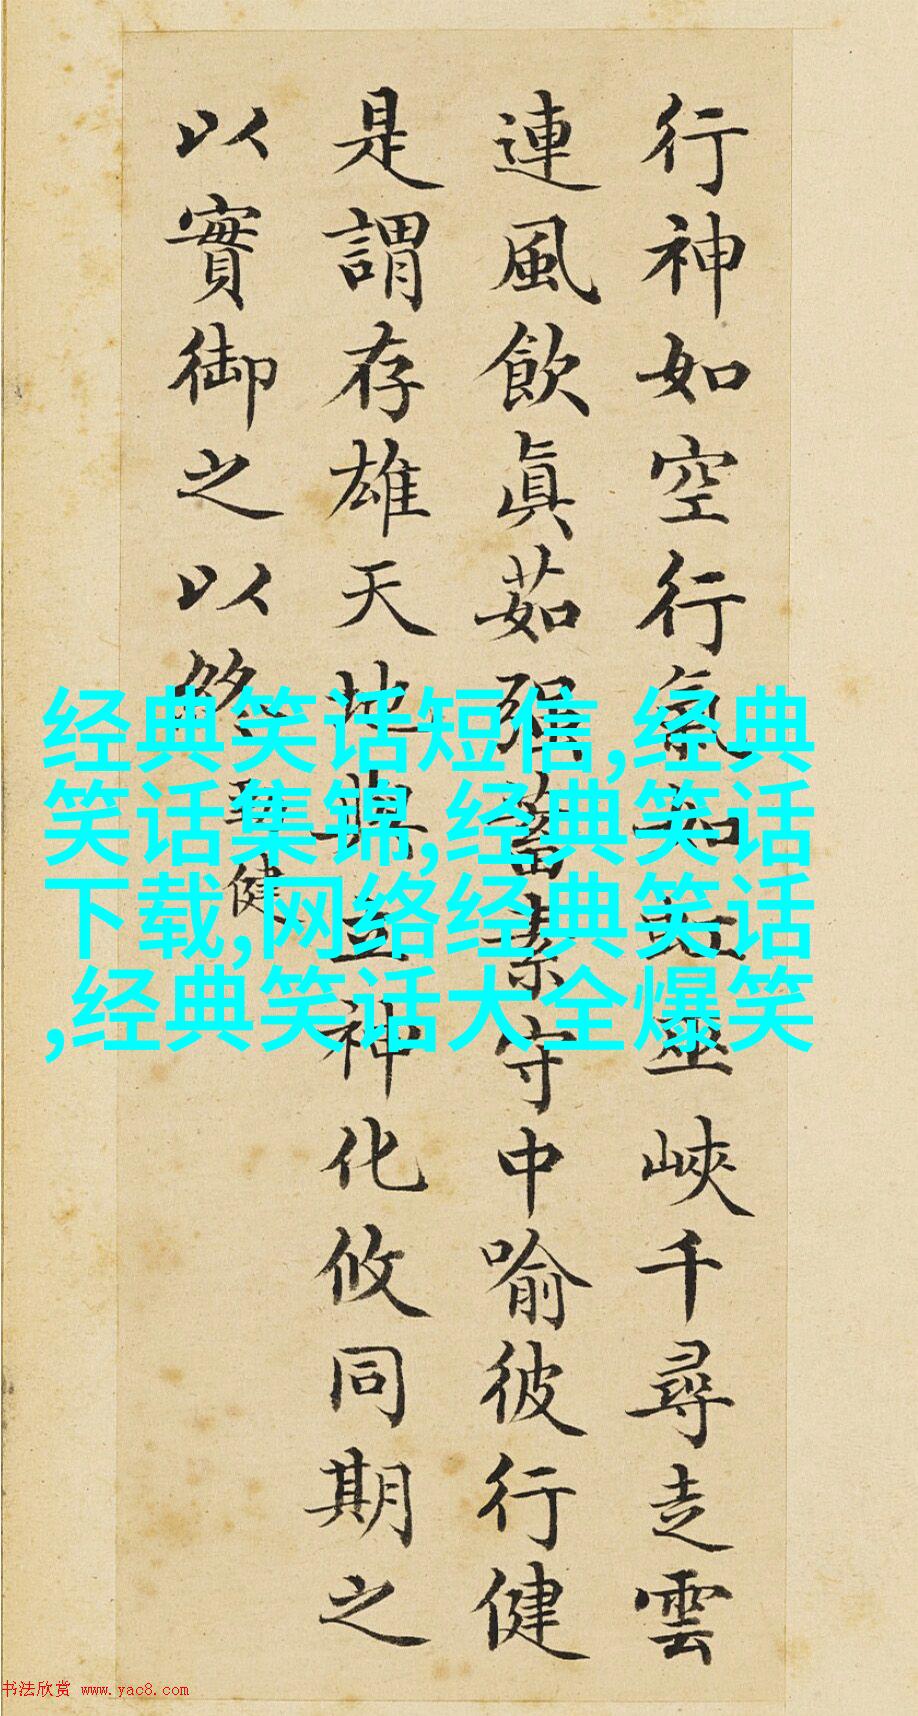 行神如空行氣如虹巫峽千尋走雲
連風飲眞茹强蓄素守中喻彼行健
是謂存雄天地與立神化攸同期之
以實御之以終
勁健
经典笑话短信,经典
笑话集锦,经典笑话
下载,网络经典笑话
,经典笑话大全爆笑
书法欣赏 www.yac8.com